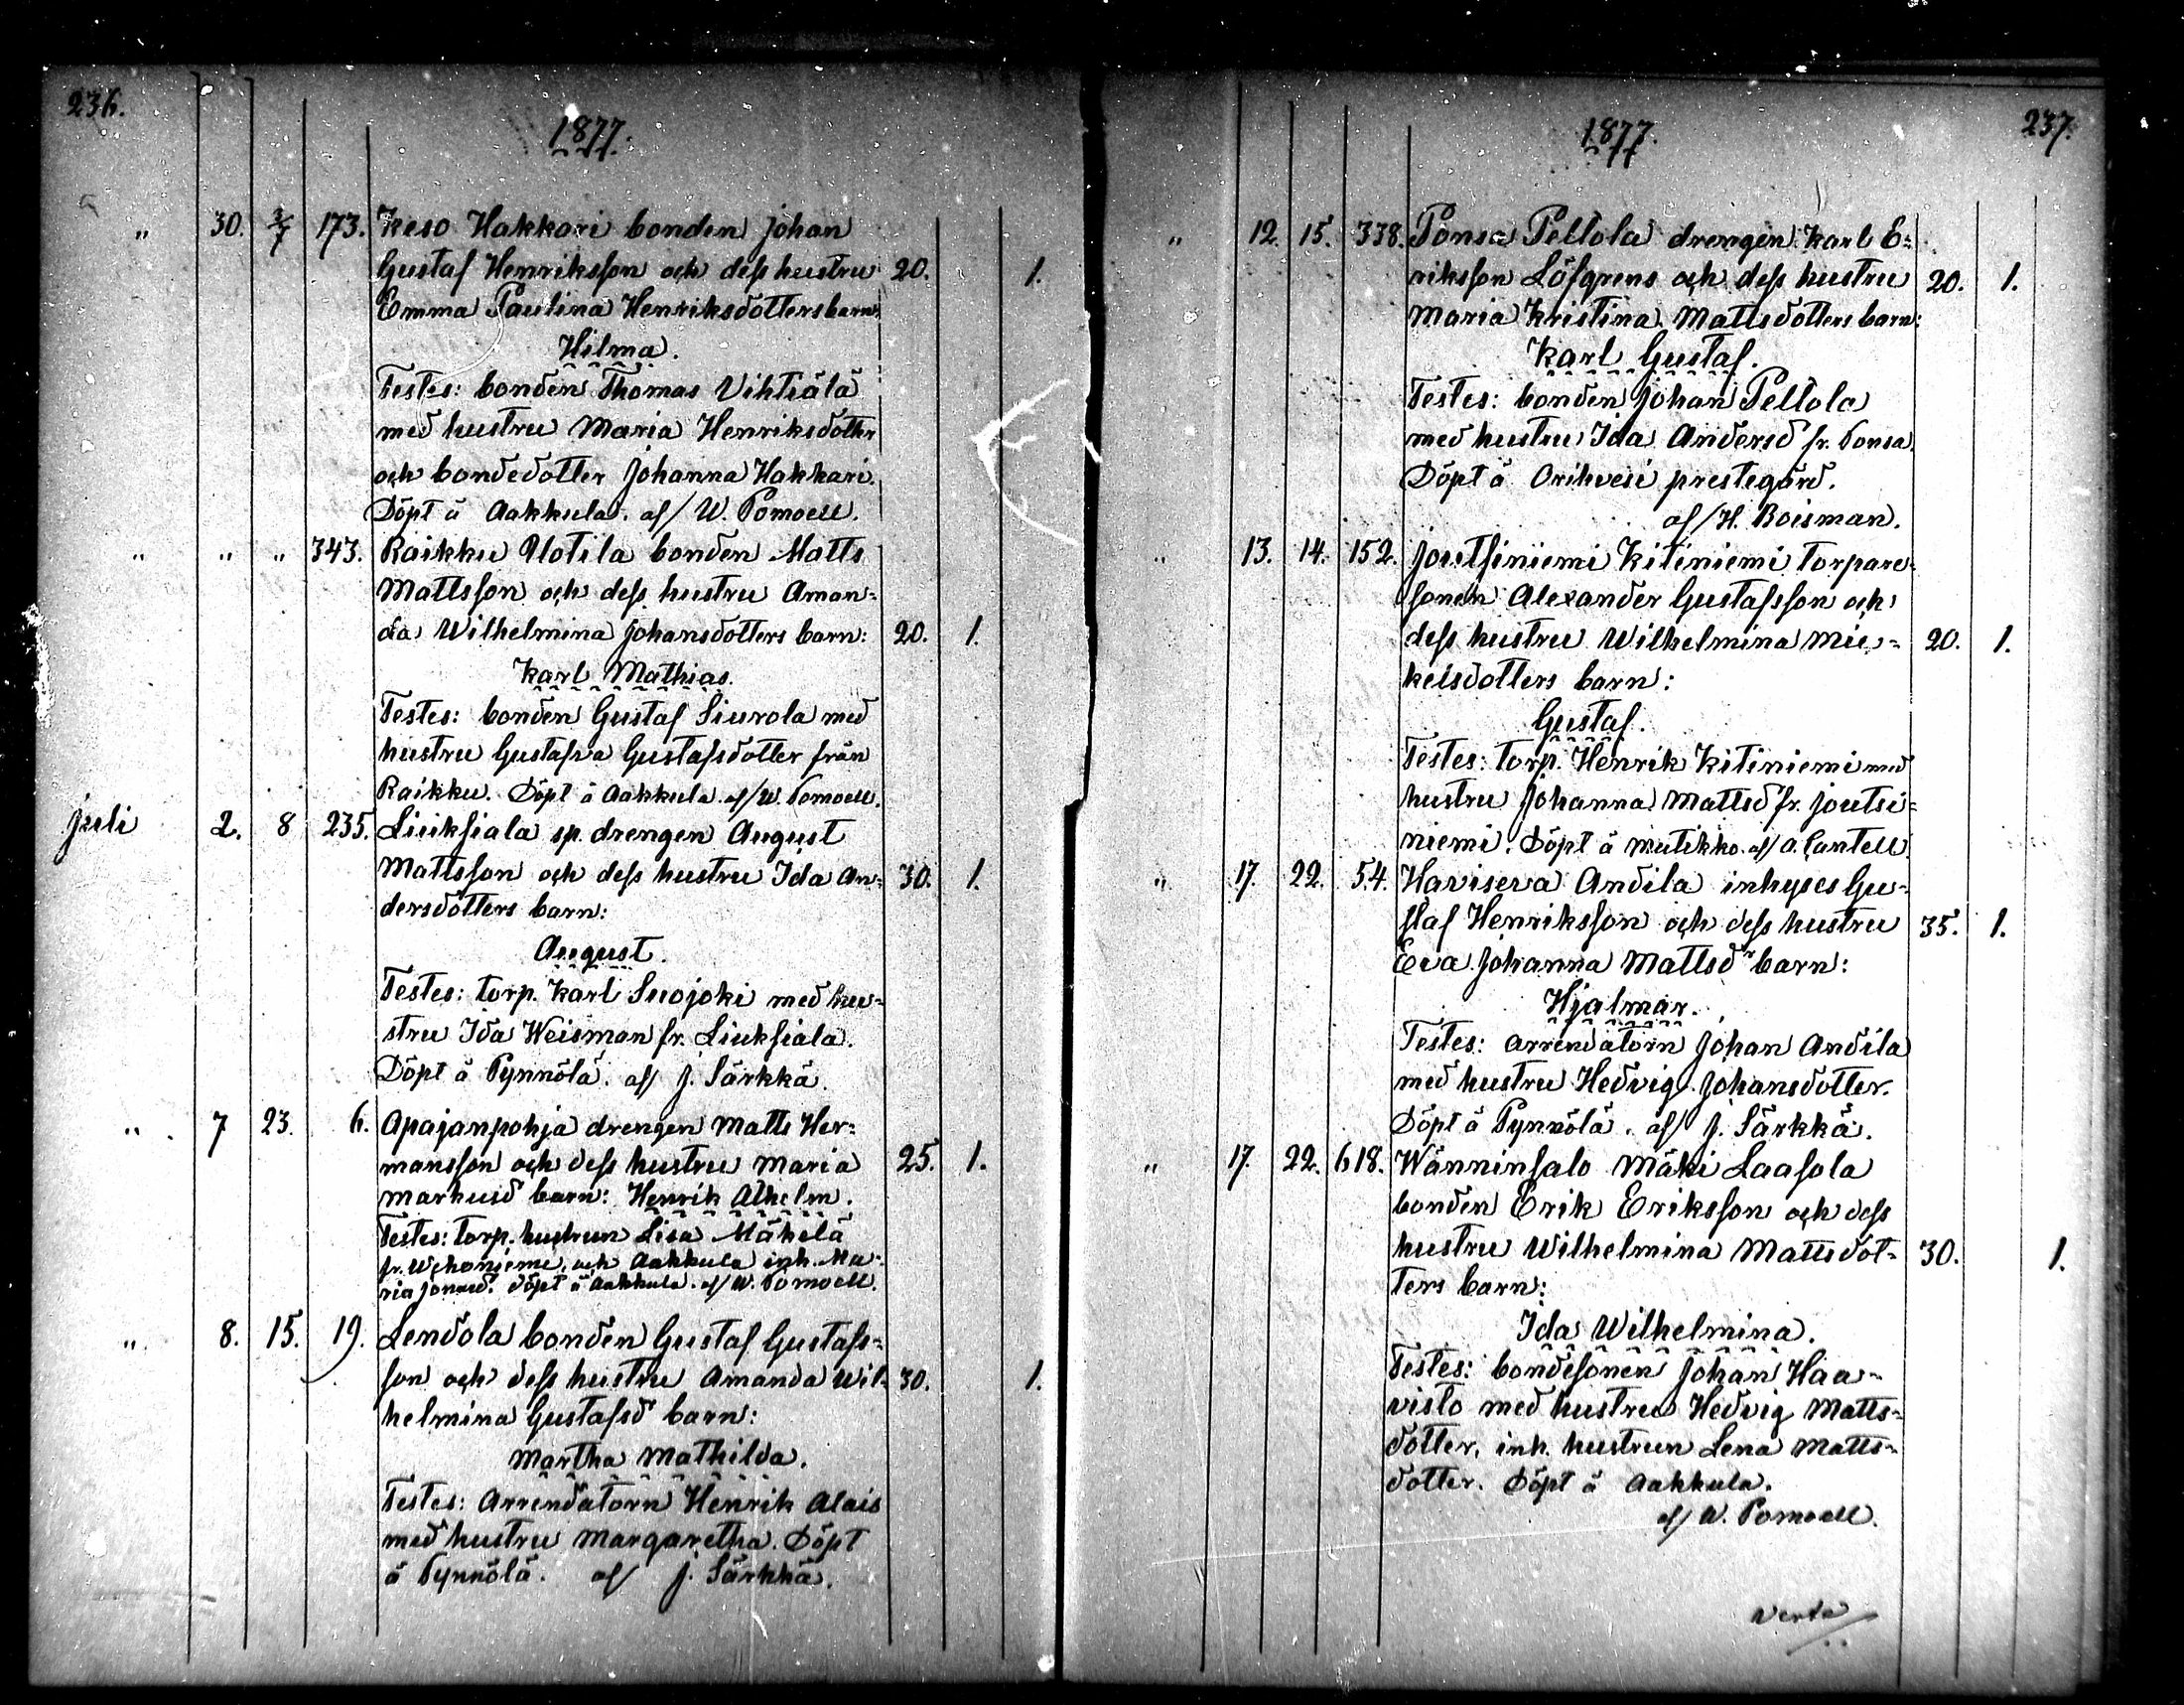 236.
1877.
" 30. 3/7 173. Keso Hakkari bonden Johan
Gustaf Henriksson och dess hustru 20. 1.
Emma Paulina Henriksdotters barn:
Hilma.
Testes: bonden Thomas Vihtiälä
med hustru Maria Henriksdotter
och bondedotter Johanna Hakkari.
Döpt å Aakkula. af/ W. Pomoell.
" " " 343. Raikku Uotila bonden Matts
Mattsson och dess hustru Aman=
da Wilhelmina Johansdotters barn: 20. 1.
Karl Mathias.
Testes: bonden Gustaf Siurola med
hustru Gustafva Gustafsdotter från
Raikku. Döpt å Aakkula af/ W. Pomoell.
Juli 2. 8 235. Liuksiala sp. drengen August
Mattsson och dess hustru Ida An= 30. 1.
dersdotters barn:
August.
Testes: torp. Karl Suojoki med hu=
stru Ida Weisman fr. Liuksiala.
Döpt å Pynnölä. af/ J. Särkkä.
" 7 23. 6. Apajanpohja drengen Matts Her=
mansson och dess hustru Maria 25. 1.
Markusd barn: Henrik Athelm.
Testes: torp. hustrun Lisa Mäkelä
fr. och Aakkula inh. Ma=
ria Döpt å Aakkula. af/ W. Pomoell.
" 8. 15. 19. Lendola bonden Gustaf Gustafs=
son och dess hustru Amanda Wil= 30. 1.
helmina Gustafsd barn:
Martha Mathilda.
Testes: Arrendatorn Henrik Alais
med hustru Margaretha. Döpt
å Pynnölä. af/ J. Särkkä.
237.
1877.
" 12. 15. 338. Ponsa Peltola drengen Karl E=
riksson Löfgrens och dess hustru 20. 1.
Maria Kristina Mattsdotters barn:
Karl Gustaf.
Testes: bonden Johan Peltola
med hustru Ida Andersd fr. Ponsa.
Döpt å Orihvesi prestegård.
af/ H. Boisman.
" 13. 14. 152. Joutsiniemi Kitiniemi torpare=
sonen Alexander Gustafsson och
dess hustru Wilhelmina Mic= 20. 1.
kelsdotters barn:
Gustaf.
Testes: torp. Henrik Kitiniemi med
hustru Johanna Mattsd fr. Joutsi=
niemi. Döpt å Mutikko. af/ A. Cantell.
" 17. 22. 54. Havisevа Andila inhyses Gu=
staf Henriksson och dess hustru 35. 1.
Eva Johanna Mattsd barn:
Hjalmar.
Testes: arrendatorn Johan Andila
med hustru Hedvig Johansdotter.
Döpt å Pynnölä. af/ J. Särkkä.
" 17. 22. 618. Wänninsalo Mäki Laasola
bonden Erik Eriksson och dess
hustru Wilhelmina Mattsdot= 30. 1.
ters barn:
Ida Wilhelmina.
Testes: bondesonen Johan Haa=
visto med hustru Hedvig Matts=
dotter, inh. hustrun Lena Matts=
dotter. Döpt å Aakkula.
af/ W. Pomoell.
Verte